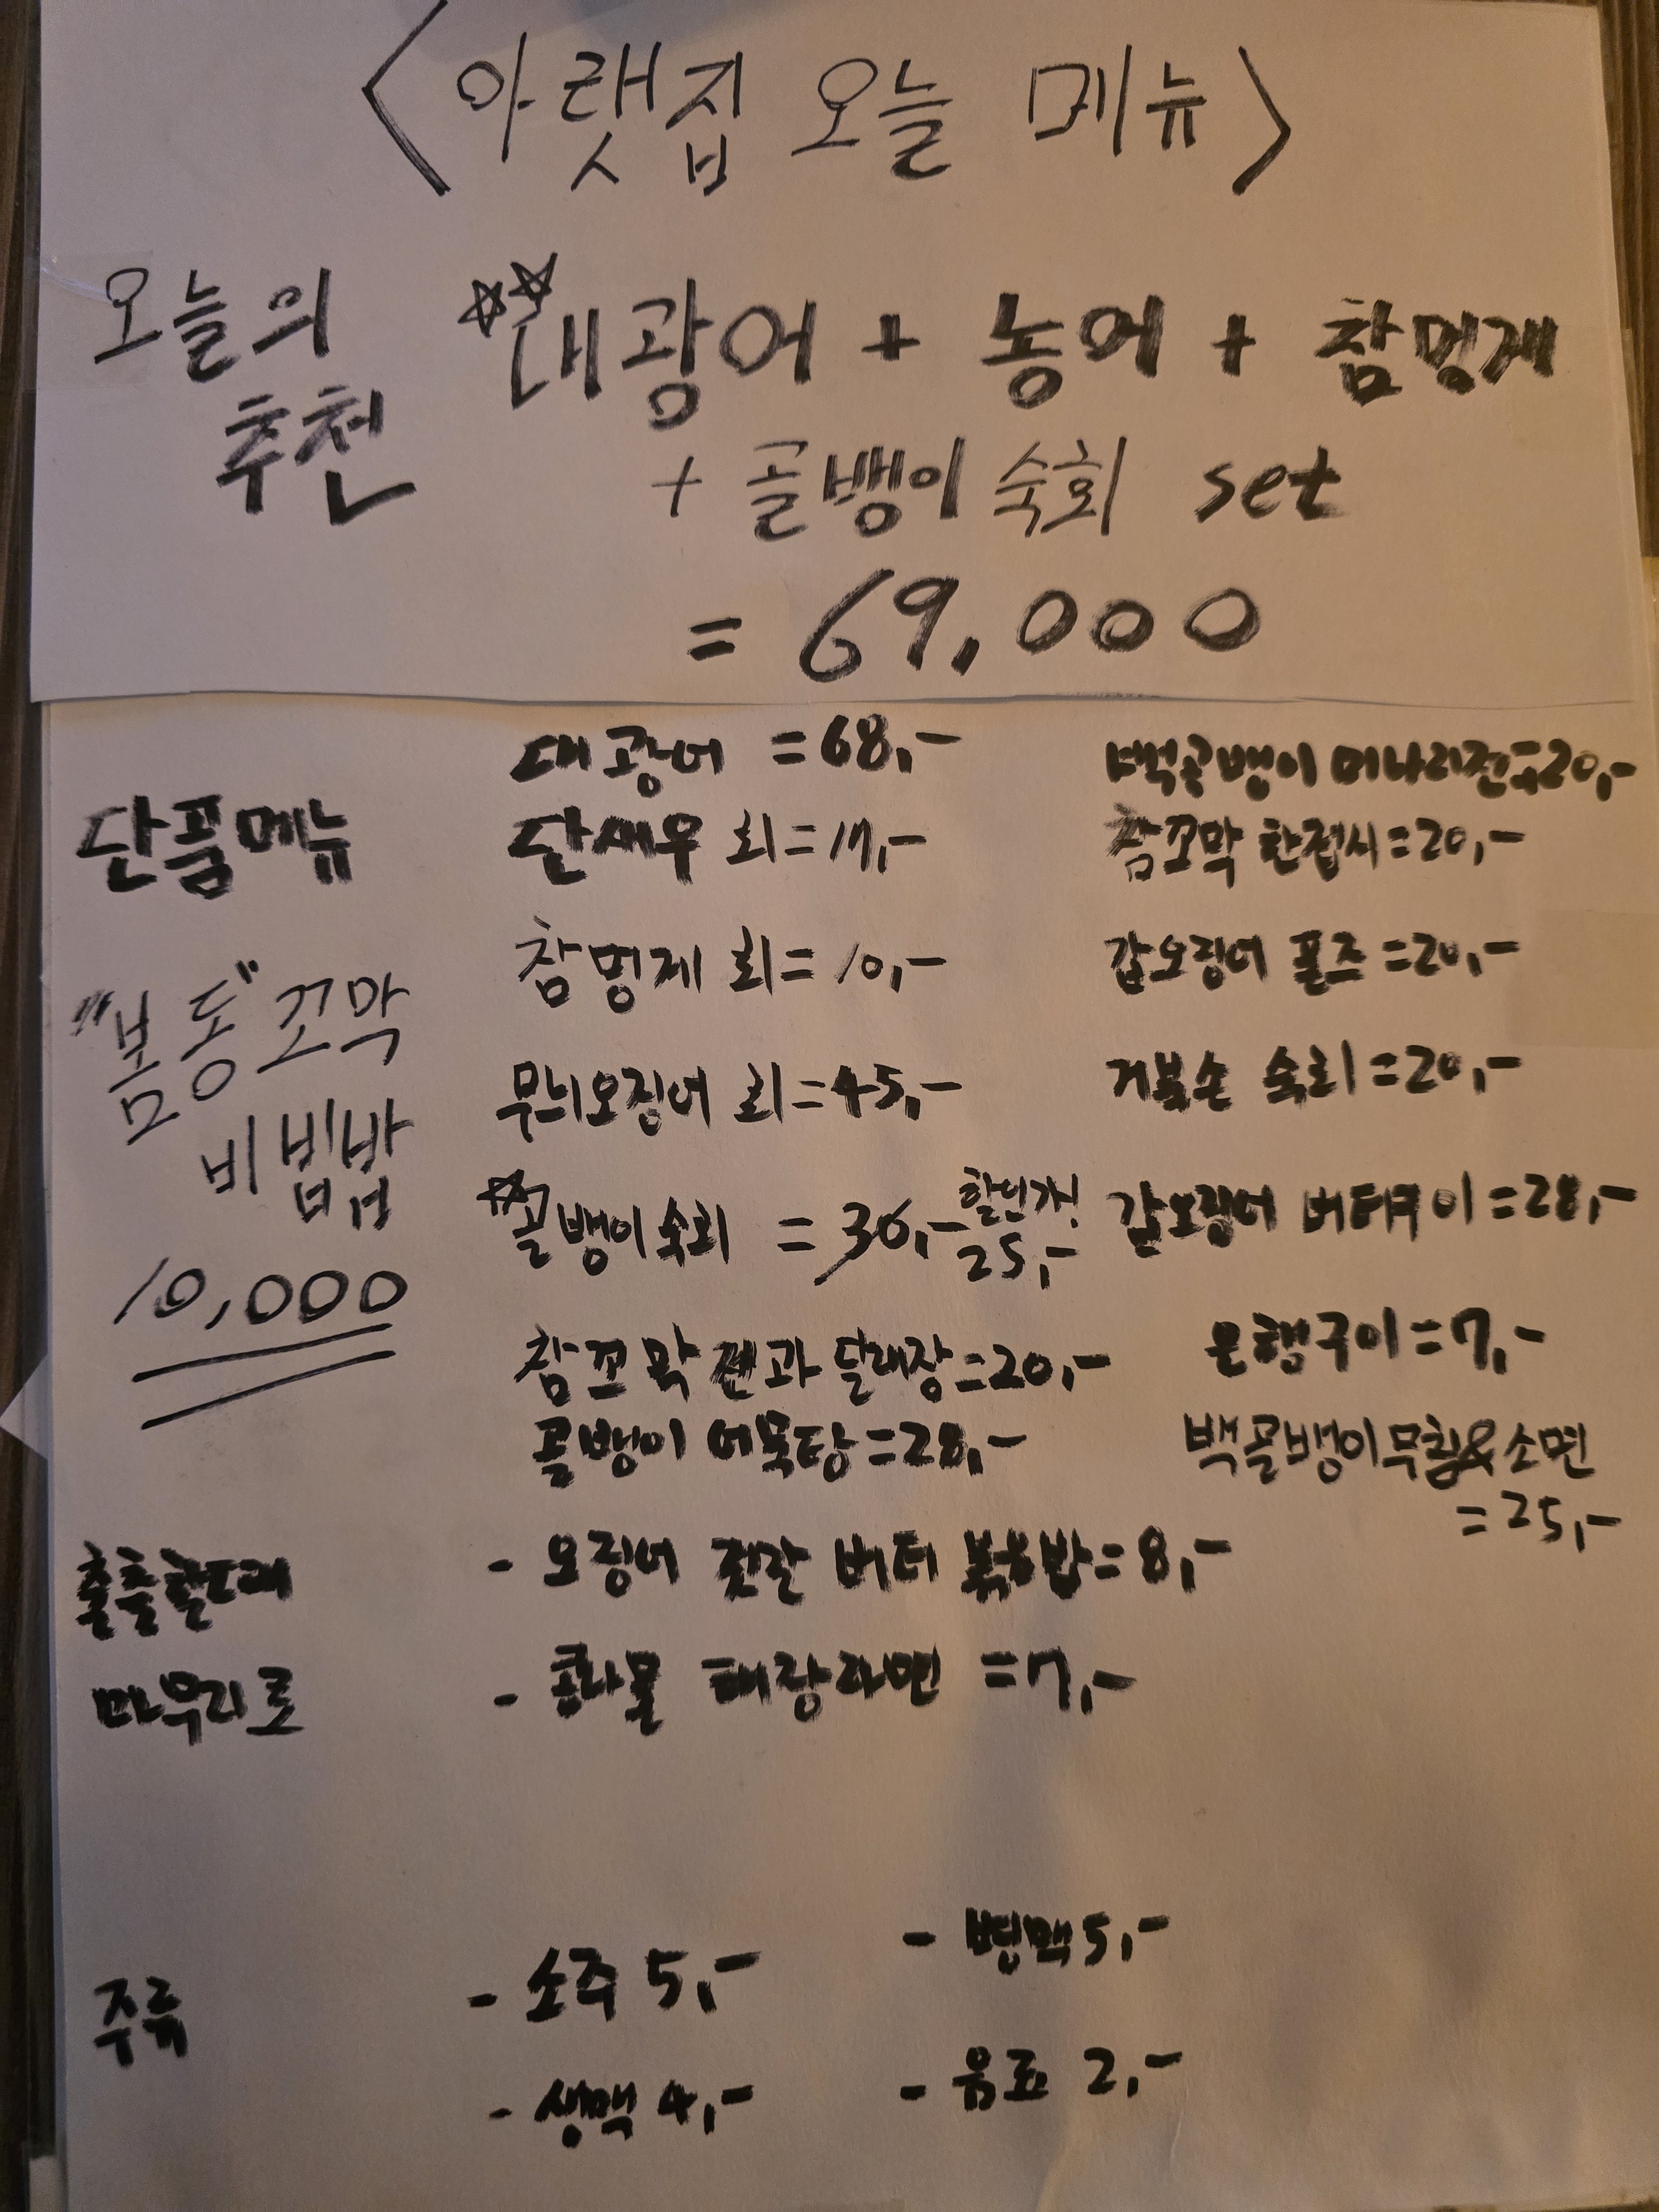 <아랫집 오늘 메뉴>
오늘의
추천
☆☆대광어 + 농어 + 참멍게
+ 골뱅이 숙회 set
= 69,000
단품메뉴
"봄동" 꼬막
비빔밥
10,000
대광어 = 68,-
단새우 회 = 17,-
참멍게 회 = 10,-
무늬오징어 회 = 45,-
☆골뱅이 숙회 = 30,- 할인가!
25,-
참꼬막 전과 달래장 = 20,-
골뱅이 어묵탕 = 28,-
백골뱅이 미나리전 = 20,-
참꼬막 한접시 = 20,-
갑오징어 폰즈 = 20,-
거북손 숙회 = 20,-
갑오징어 버터구이 = 28,-
은행구이 = 7,-
백골뱅이무침&소면
= 25,-
출출할때
마무리로
- 오징어 젓갈 버터 볶음밥 = 8,-
- 콩나물 해장라면 = 7,-
주류
- 소주 5,-
- 병맥 5,-
- 생맥 4,-
- 음료 2,-